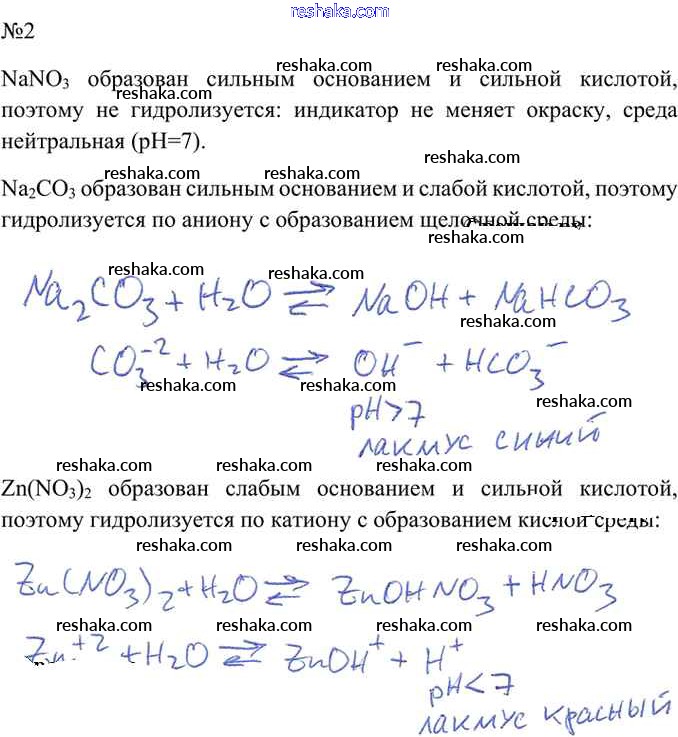 reshaka.com
№2
reshaka.com reshaka.com
NaNO₃ образован сильным основанием и сильной кислотой,
reshaka.com
поэтому не гидролизуется: индикатор не меняет окраску, среда
reshaka.com
нейтральная (pH=7).
reshaka.com
reshaka.com
Na₂CO₃ образован сильным основанием и слабой кислотой, поэтому
reshaka.com
гидролизуется по аниону с образованием щелочной среды:
reshaka.com
reshaka.com
Na₂CO₃ + H₂O ⇄ NaOH + NaHCO₃
reshaka.com reshaka.com
CO₃⁻² + H₂O ⇄ OH⁻ + HCO₃⁻
reshaka.com
reshaka.com
pH>7
лакмус синий
reshaka.com reshaka.com reshaka.com
Zn(NO₃)₂ образован слабым основанием и сильной кислотой,
reshaka.com
поэтому гидролизуется по катиону с образованием кислой среды:
reshaka.com reshaka.com
Zn(NO₃)₂ + H₂O ⇄ ZnOHNO₃ + HNO₃
reshaka.com reshaka.com
Zn⁺² + H₂O ⇄ ZnOH⁺ + H⁺
pH<7
reshaka.com
лакмус красный